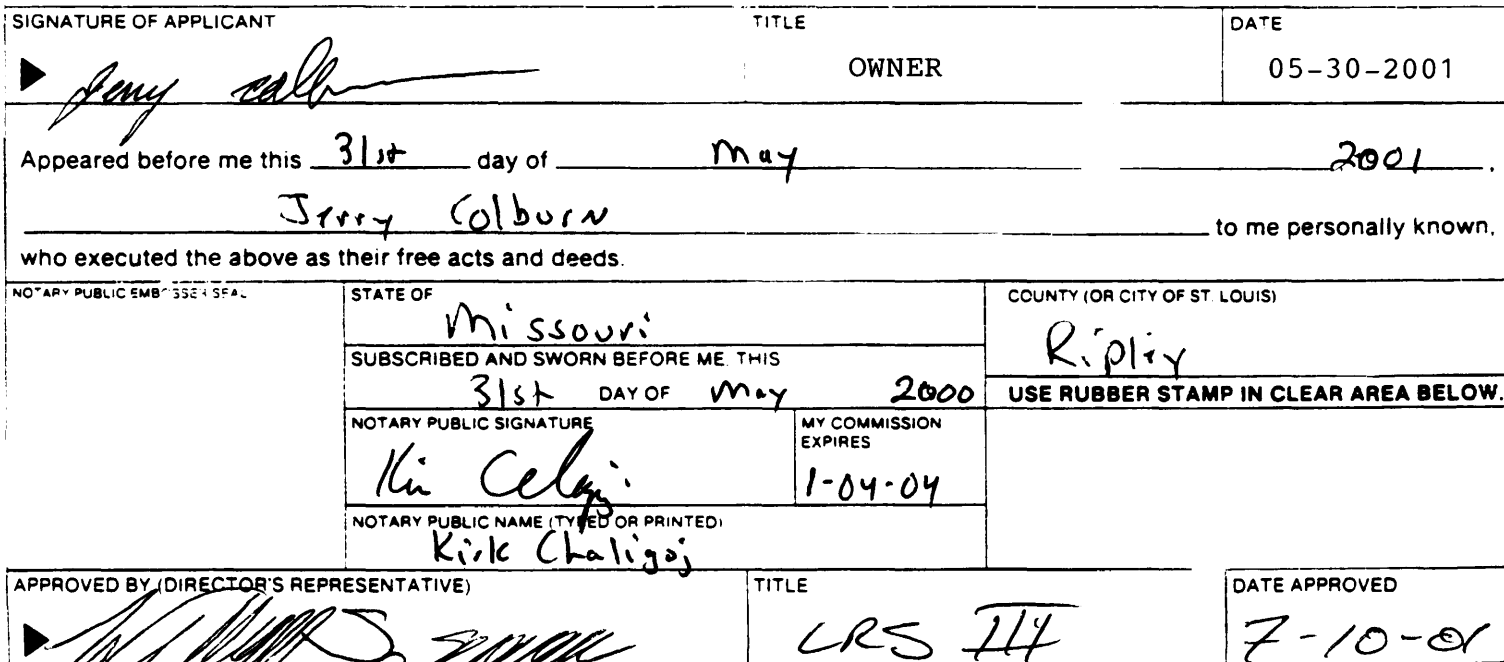 SIGNATURE OF APPLICANT TITLE DATE
Jerry OWNER 05-30-2001
Appeared before me this 31st day of May 2001.
Jerry Colburn to me personally known,
who executed the above as their free acts and deeds.
NOTARY PUBLIC EMBOSSER SEAL STATE OF COUNTY (OR CITY OF ST. LOUIS)
Missouri Ripley
SUBSCRIBED AND SWORN BEFORE ME, THIS
31st DAY OF May 2000 USE RUBBER STAMP IN CLEAR AREA BELOW.
NOTARY PUBLIC SIGNATURE MY COMMISSION EXPIRES
1-04-04
NOTARY PUBLIC NAME (TYPED OR PRINTED)
Kirk Chaligoj
APPROVED BY (DIRECTOR'S REPRESENTATIVE) TITLE DATE APPROVED
LRS III 7-10-01